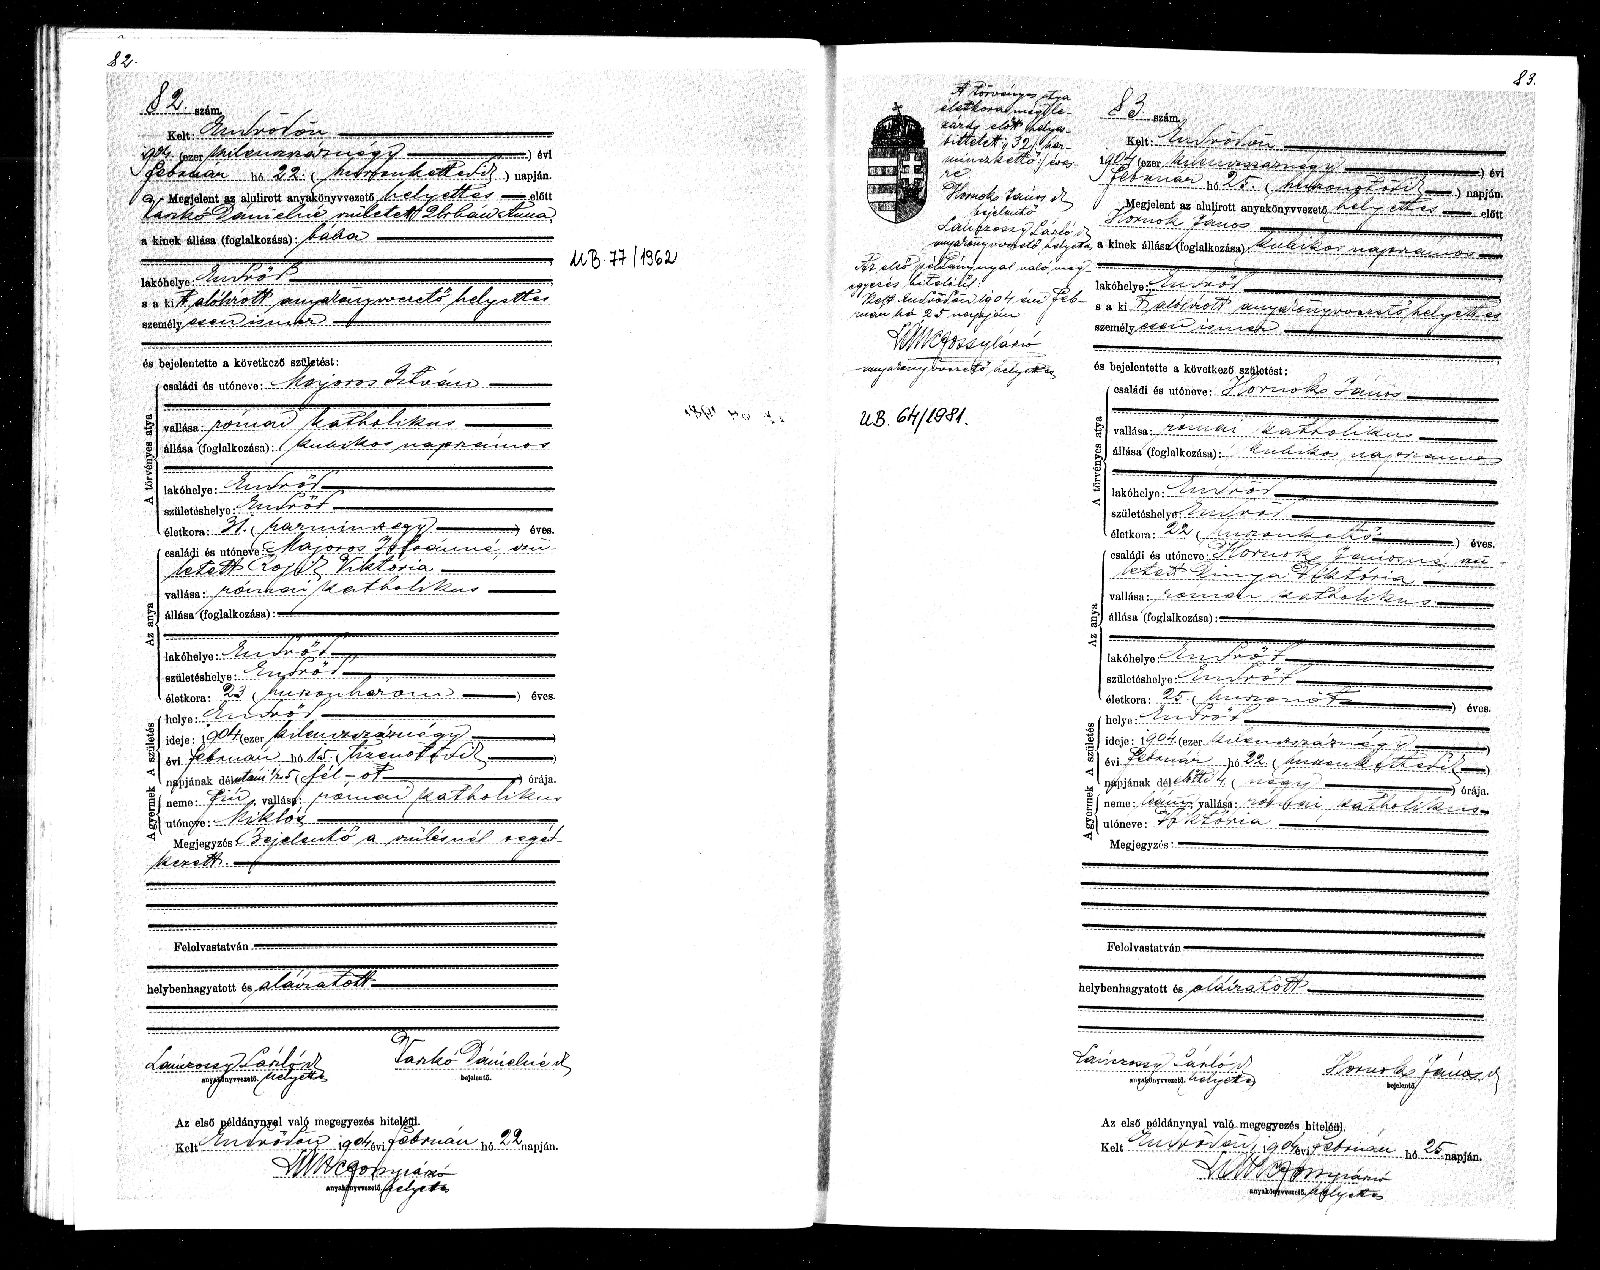 82.
82. szám.
Kelt: Endrődön
1904. (ezer kilenczszáznégy) évi
február hó 22. (huszonkettedik) napján.
Megjelent az alulirott anyakönyvvezető helyettes előtt
Varkó Dánielné született Urbán Anna
a kinek állása (foglalkozása): bába
lakóhelye: Endrőd
s a kit alólirott anyakönyvvezető helyettes
személyesen ismer
és bejelentette a következő születést:
A törvényes atya
családi és utóneve: Majoros István
vallása: római katholikus
állása (foglalkozása): kubikos napszámos
lakóhelye: Endrőd
születéshelye: Endrőd
életkora: 31. (harminczegy) éves.
Az anya
családi és utóneve: Majoros Istvánné szü-
letett Viktória
vallása: római katholikus
állása (foglalkozása):
lakóhelye: Endrőd
születéshelye: Endrőd
életkora: 23 (huszonhárom) éves.
A gyermek A születés
helye: Endrőd
ideje: 1904 (ezer kilenczszáznégy)
évi február hó 15. (tizenötödik)
napjának délutáni 1/2 5 (fél-öt) órája.
neme: fiú, vallása: római katholikus
utóneve: Miklós
Megjegyzés: Bejelentő a szülésnél segéd-
kezett.
Felolvastatván
helybenhagyatott és aláiratott
László h
helyettes
anyakönyvvezető.
Varkó Dánielné h
bejelentő.
Az első példánynyal való megegyezés hiteléül.
Kelt Endrődön 1904 évi február hó 22 napján.
anyakönyvvezető. helyettes
UB. 77/1962
A törvényes atya
életkora még le-
zárás előtt helyes-
bittetett "32" /har-
minczkettő/ éves-
re
Hornok János h
bejelentő
László h
anyakönyvvezető helyettes
Az első példánynyal való meg-
egyezés hiteléül.
Kelt Endrődön 1904 évi feb-
ruár hó 25 napján
anyakönyvvezető helyettes
UB. 64/1981.
83.
83 szám.
Kelt: Endrődön
1904 (ezer kilenczszáznégy) évi
február hó 25. (huszonötödik) napján.
Megjelent az alulirott anyakönyvvezető helyettes előtt
Hornok János
a kinek állása (foglalkozása): kubikos napszámos
lakóhelye: Endrőd
s a kit alólirott anyakönyvvezető helyettes
személyesen ismer
és bejelentette a következő születést:
A törvényes atya
családi és utóneve: Hornok János
vallása: római katholikus
állása (foglalkozása): kubikos napszámos
lakóhelye: Endrőd
születéshelye: Endrőd
életkora: 22 (huszonkettő) éves.
Az anya
családi és utóneve: Hornok Jánosné szü-
letett Dinya Viktória
vallása: római katholikus
állása (foglalkozása):
lakóhelye: Endrőd
születéshelye: Endrőd
életkora: 25. (huszonöt) éves.
A gyermek A születés
helye: Endrőd
ideje: 1904 (ezer kilenczszáznégy)
évi február hó 22. (huszonkettedik)
napjának délelőtti 4 (négy) órája.
neme: leány, vallása: római katholikus
utóneve: Viktória
Megjegyzés:
Felolvastatván
helybenhagyatott és aláiratott
László h
anyakönyvvezető. helyettes
Hornok János h
bejelentő.
Az első példánynyal való megegyezés hiteléül.
Kelt Endrődön, 1904 évi február hó 25 napján.
anyakönyvvezető. helyettes